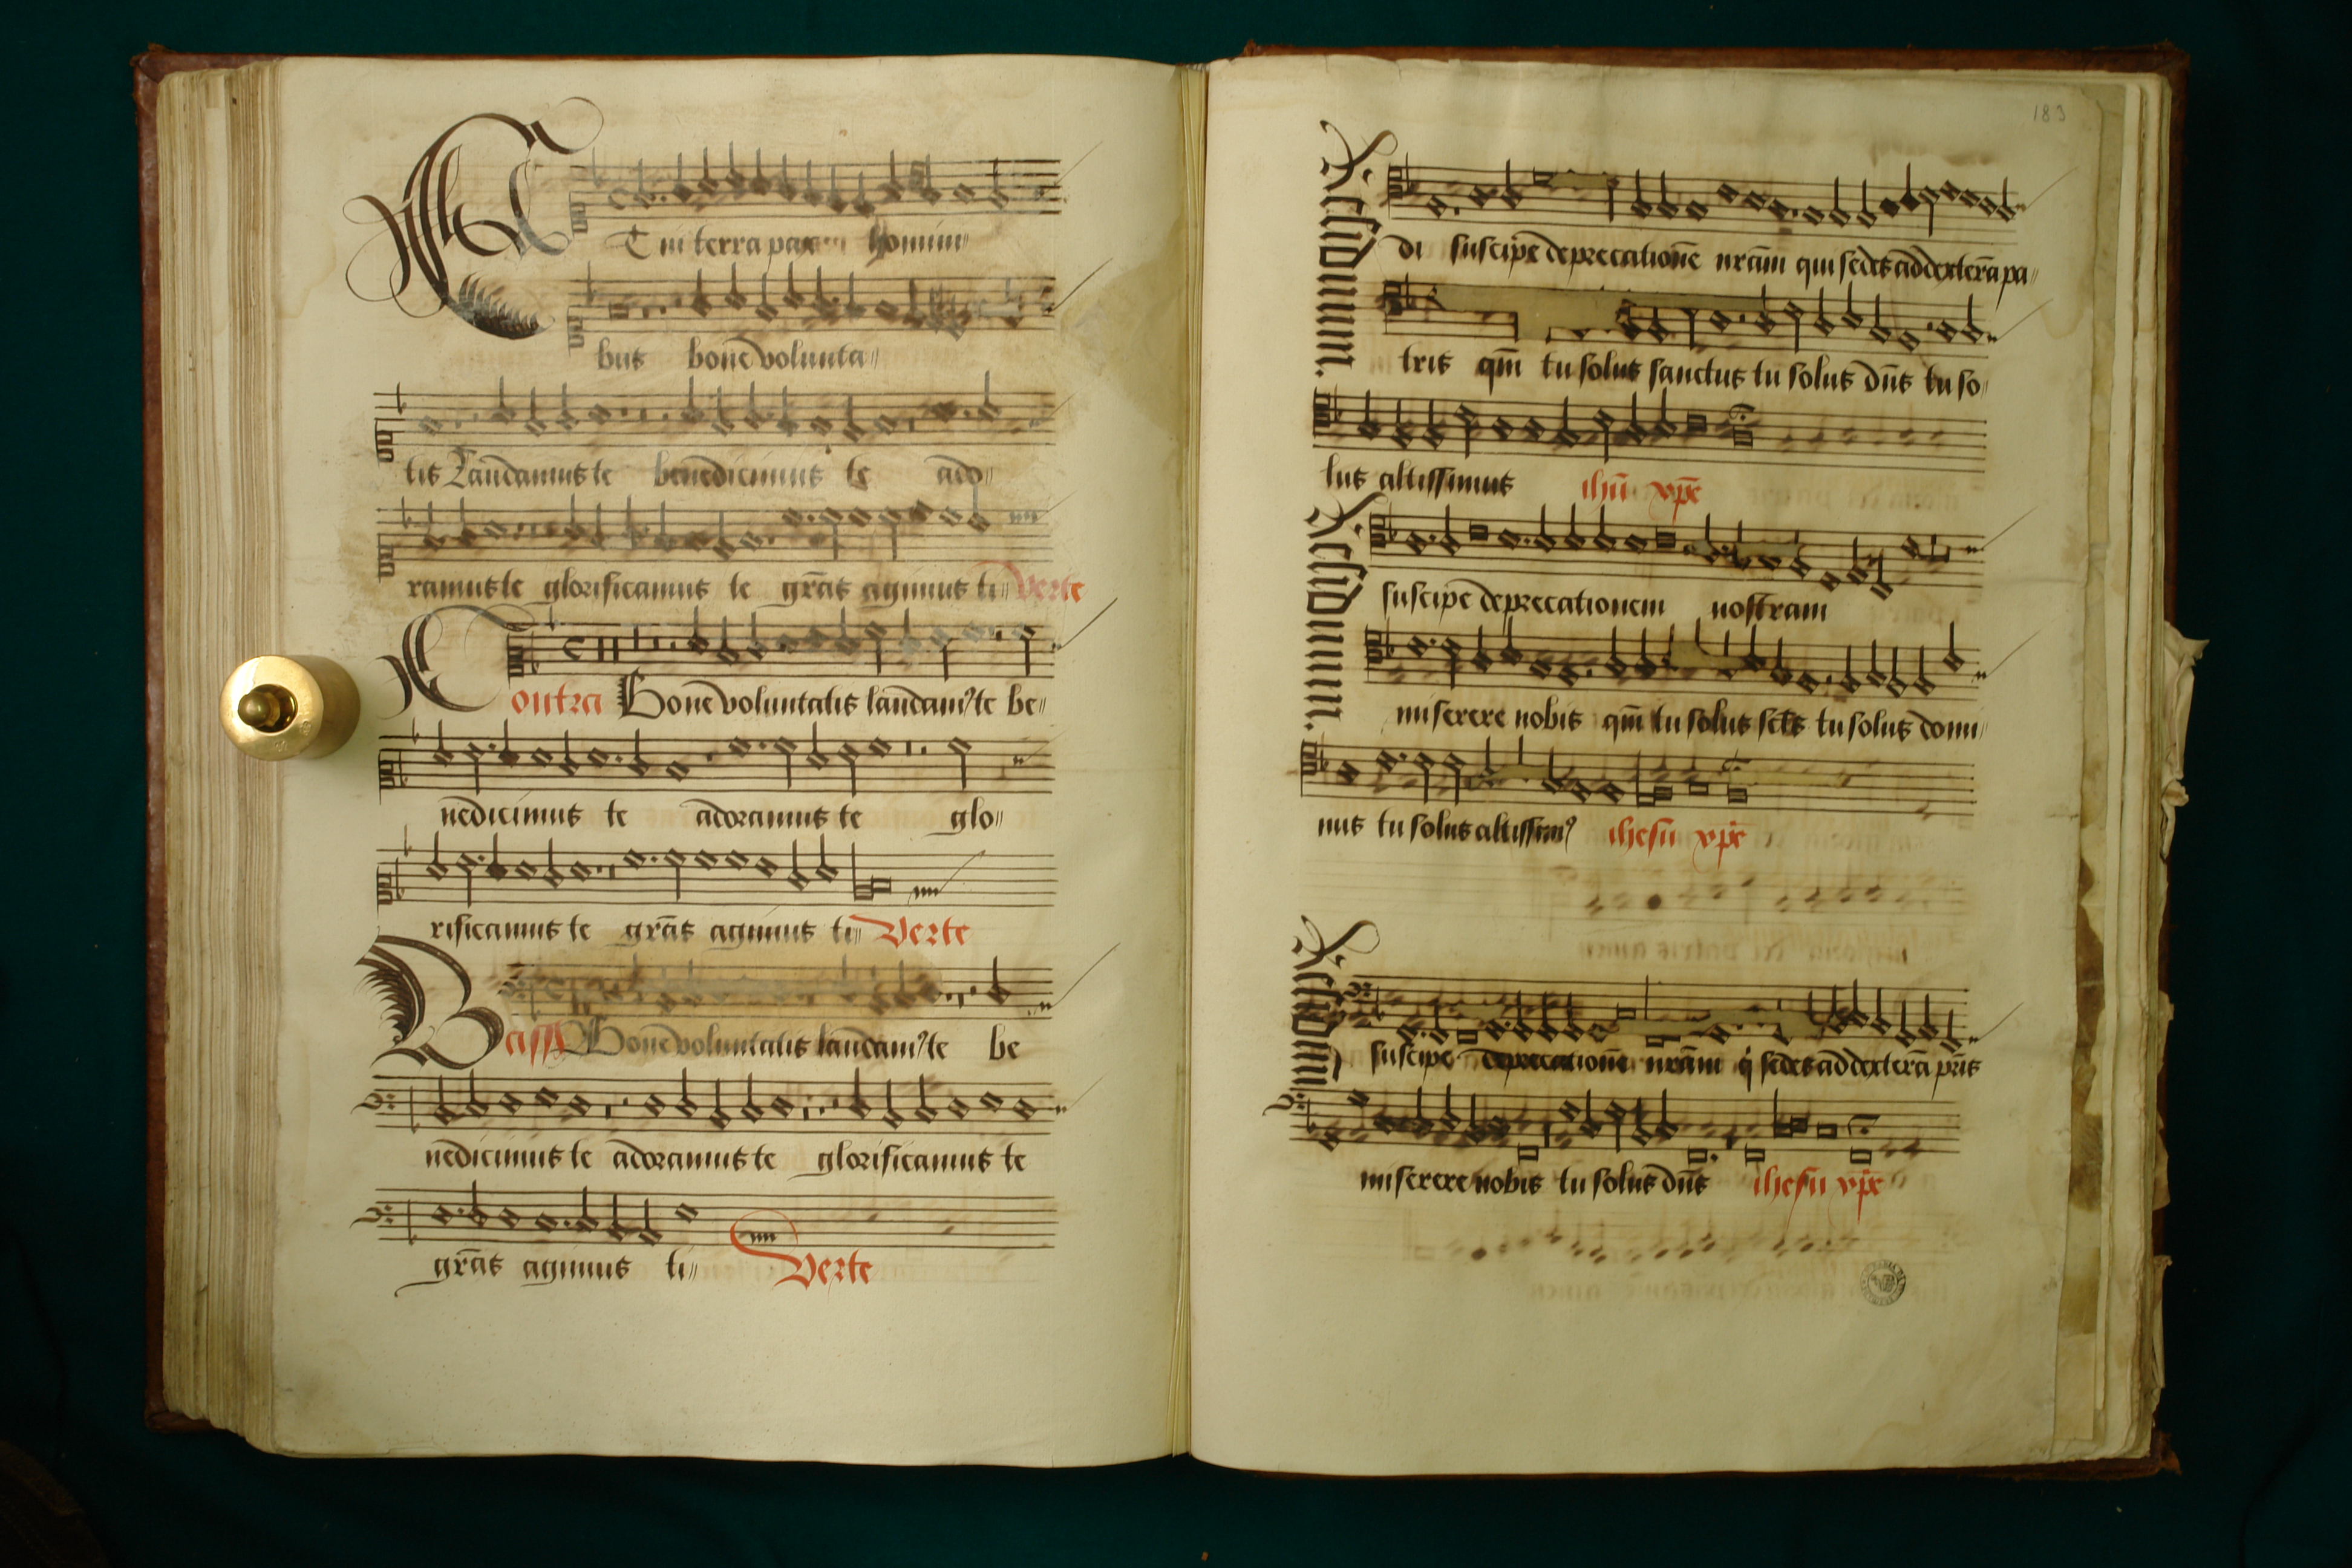 Et in terra pax homini
bus bone volunta
tis Laudamus te benedicimus te ado
ramus te glorificamus te gr̄as agimus ti verte
Contra Bone voluntatis laudamꝰ te be
nedicimus te adoramus te glo
rificamus te gr̄as agimus ti verte
Bassus Bone voluntatis laudamꝰ te be
nedicimus te adoramus te glorificamus te
gr̄as agimus ti Verte
183
Residuum.
di suscipe deprecationē nr̄am qui sedes ad dexterā pa
tris qm̄ tu solus sanctus tu solus dn̄s tu so
lus altissimus ihū xp̄e
Residuum.
suscipe deprecationem nostram
miserere nobis qm̄ tu solus sc̄ts tu solus domi
nus tu solus altissimꝰ ihesu xp̄e
Residuum
suscipe deprecationē nr̄am q sedes ad dexterā pr̄is
miserere nobis tu solus dn̄s ihesu xp̄e